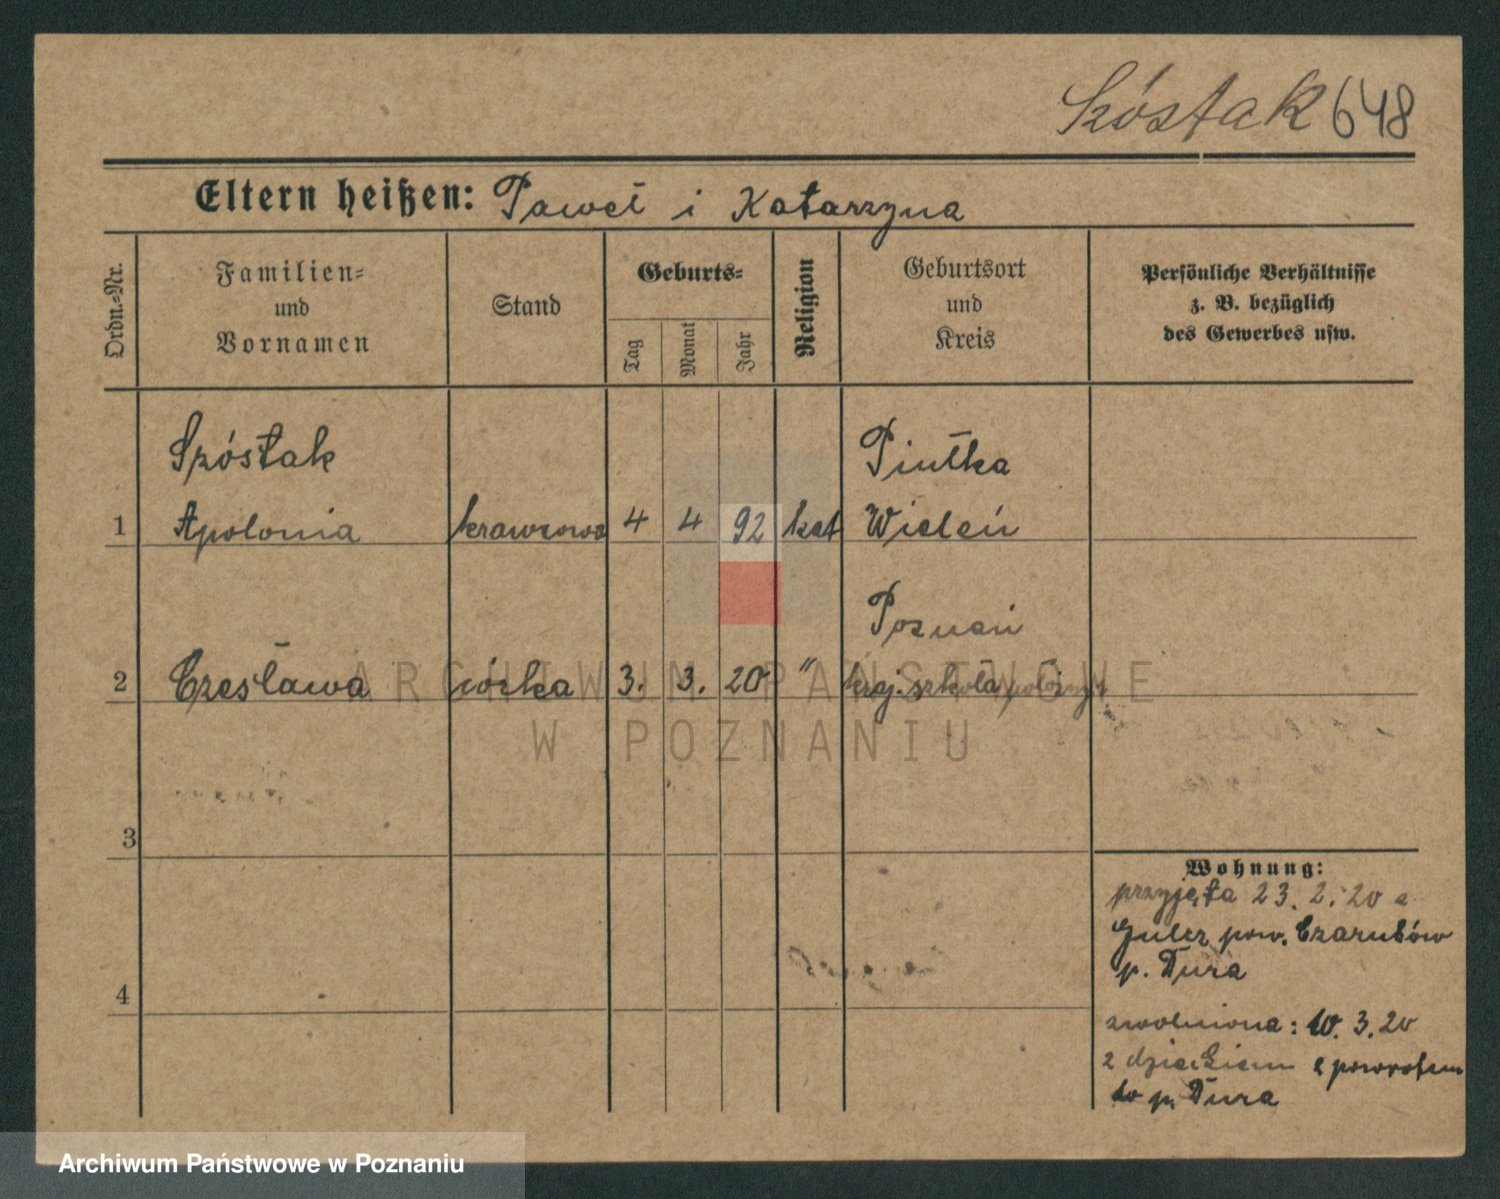 Szóstak 648
Eltern heißen: Paweł i Katarzyna
Ordn.-Nr.
Familien-
und
Vornamen
Stand
Geburts-
Tag
Monat
Jahr
Religion
Geburtsort
und
Kreis
Persönliche Verhältnisse
z. B. bezüglich
des Gewerbes usw.
Szóstak
Piłka
1 Apolonia krawcowa 4 4 92 kat Wieleń
Poznań
2 Czesława córka 3. 3. 20 " kraj. szkoła położnych
3
4
Wohnung:
przyjęta 23. 2. 20 z
Gulcz pow. Czarnków
p. Dura
zwolniona: 10. 3. 20
z dzieckiem z powrotem
do p. Dura
ARCHIWUM PAŃSTWOWE
W POZNANIU
Archiwum Państwowe w Poznaniu